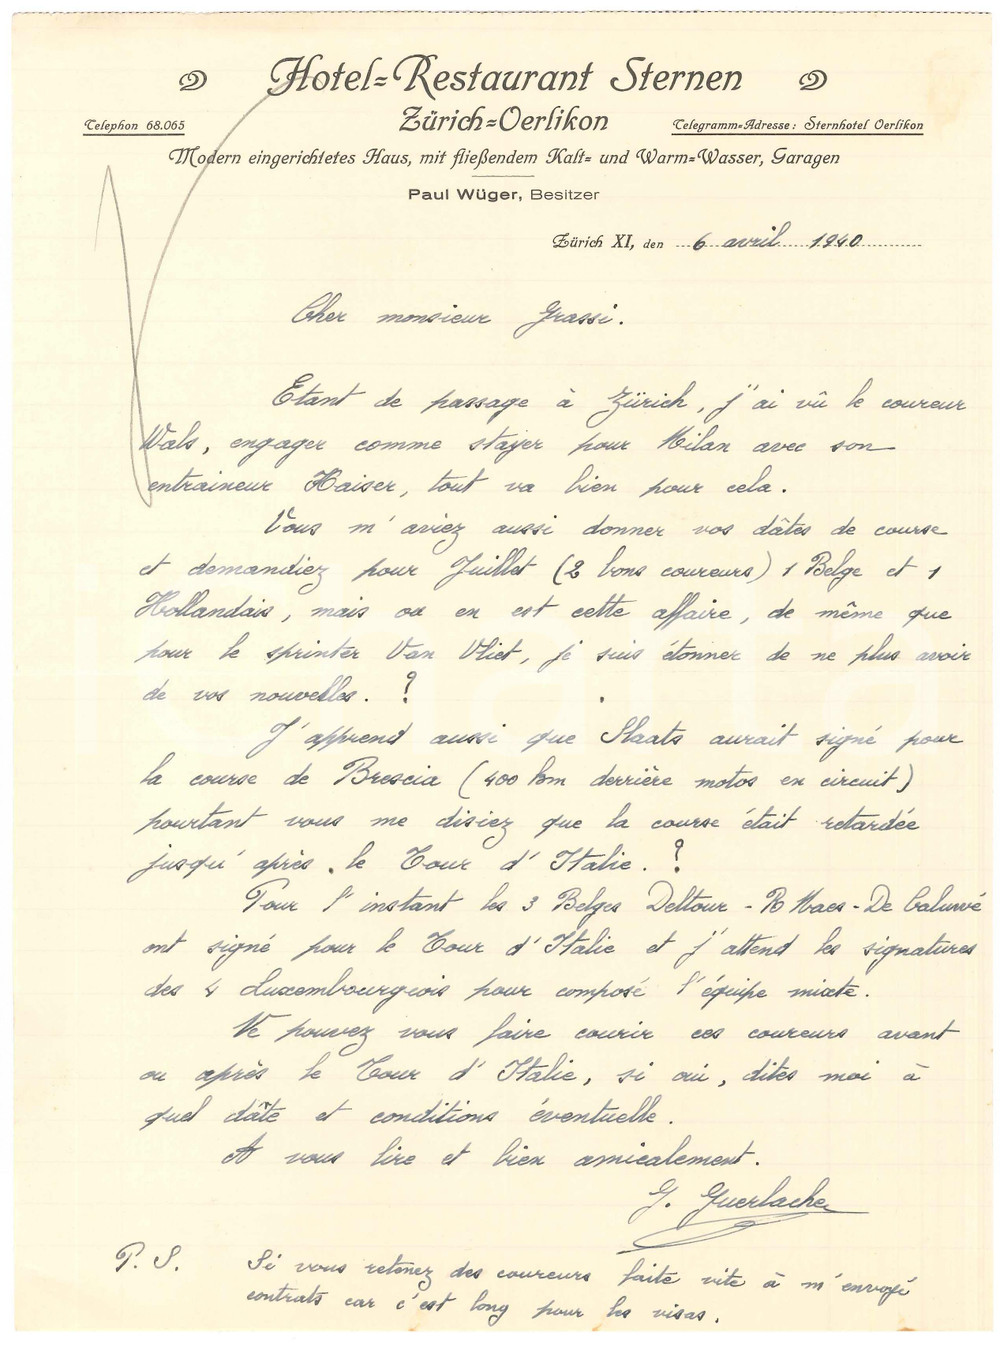 Hotel-Restaurant Sternen
Zürich-Oerlikon
Telephon 68.065
Telegramm-Adresse: Sternhotel Oerlikon
Modern eingerichtetes Haus, mit fließendem Kalt- und Warm-Wasser, Garagen
Paul Wüger, Besitzer
Zürich XI, den 6 avril 1940
Cher monsieur Grassi.
Etant de passage à Zürich, j'ai vû le coureur
Wals, engager comme stayer pour Milan avec son
entraineur Kaiser, tout va bien pour cela.
Vous m'aviez aussi donner vos dâtes de course
et demandiez pour Juillet (2 bons coureurs) 1 Belge et 1
Hollandais, mais ou en est cette affaire, de même que
pour le sprinter Van Vliet, je suis étonner de ne plus avoir
de vos nouvelles. ?
J'apprend aussi que Slaats aurait signé pour
la course de Brescia (400 km derrière motos en circuit)
pourtant vous me disiez que la course était retardée
jusqu' après le Tour d'Italie. ?
Pour l'instant les 3 Belges Deltour - R Maes - De Caluwé
ont signé pour le Tour d'Italie et j'attend les signatures
des 4 Luxembourgeois pour composé l'équipe mixte.
Ne pouvez vous faire courir ces coureurs avant
ou après le Tour d'Italie, si oui, dites moi à
quel dâte et conditions éventuelle.
A vous lire et bien amicalement.
G. Guerlache
P. S. Si vous retenez des coureurs faite vite à m'envoyé
contrats car c'est long pour les visas.